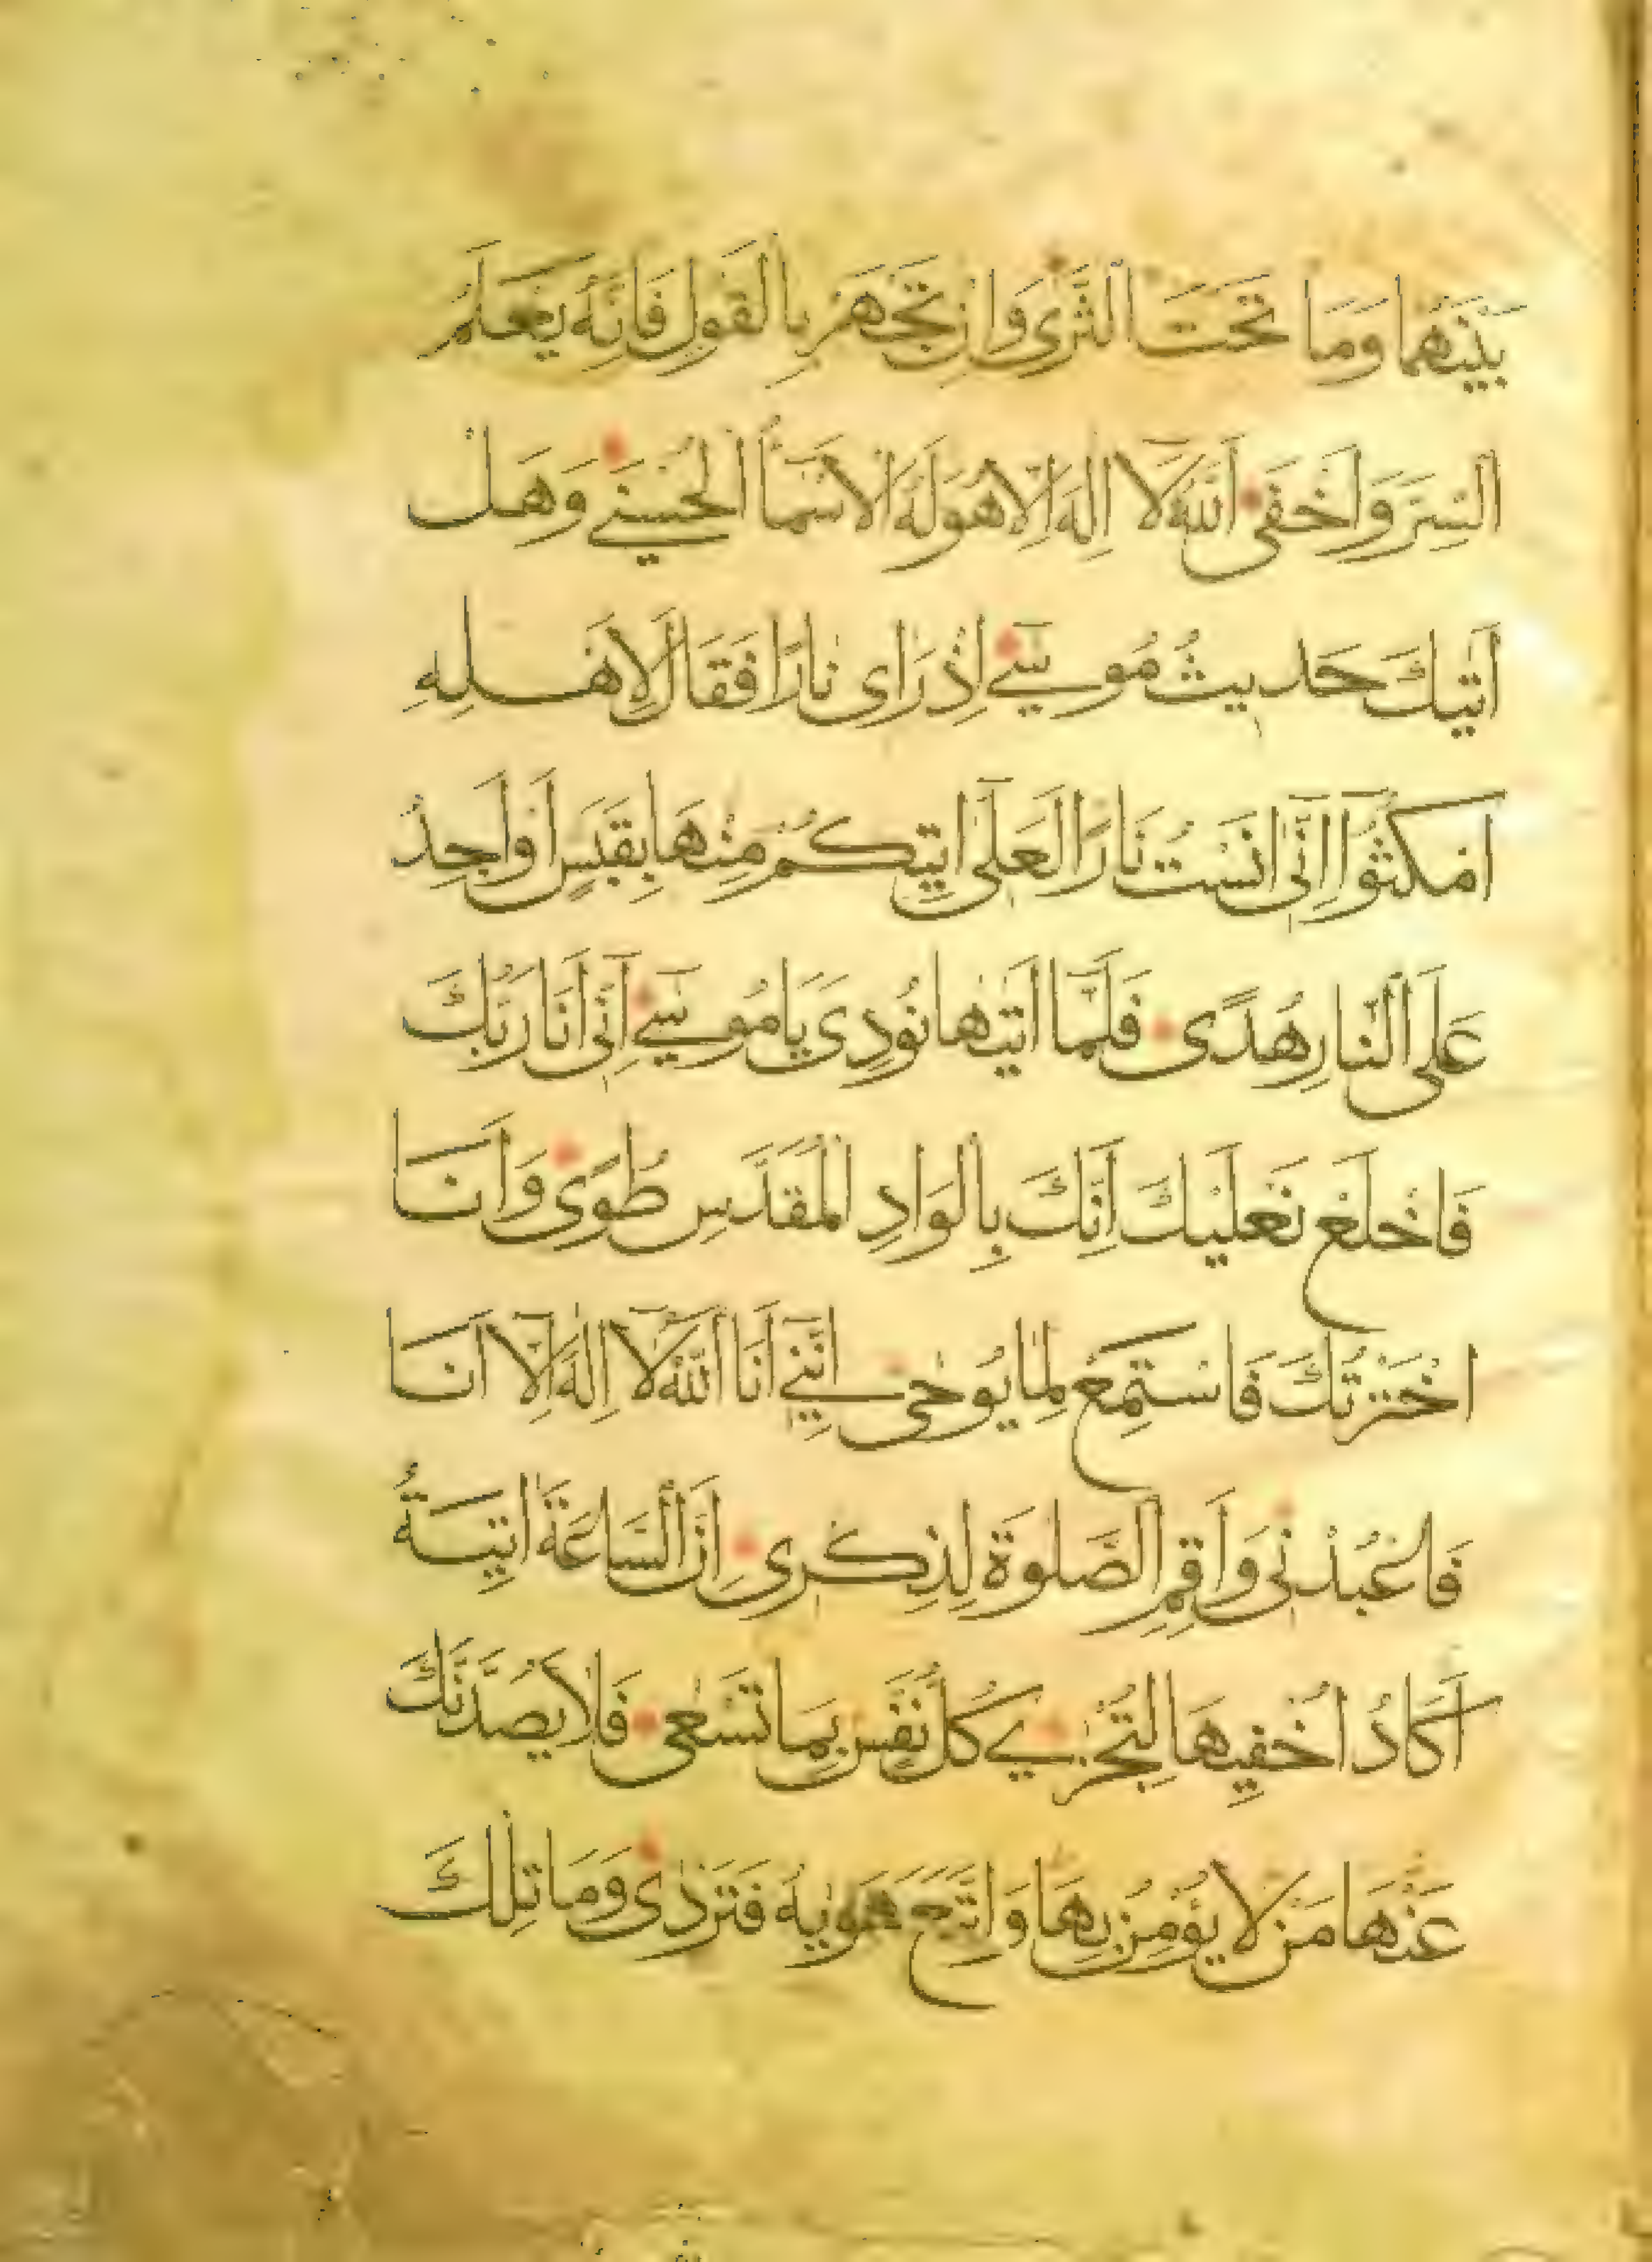 بَيْنَهُمَا وَمَا تَحْتَ الثَّرَى وَاِنْ تَجْهَرْ بِالْقَوْلِ فَاِنَّهُ يَعْلَمُ
السِّرَّ وَاَخْفَى اَللّٰهُ لَا اِلٰهَ اِلَّا هُوَ لَهُ الْاَسْمَآءُ الْحُسْنٰي وَهَلْ
اَتٰيكَ حَدِيثُ مُوسٰي اِذْ رَاٰى نَارًا فَقَالَ لِاَهْلِهِ
امْكُثُوٓا اِنِّٓى اٰنَسْتُ نَارًا لَعَلِّٓى اٰتِيكُمْ مِنْهَا بِقَبَسٍ اَوْ اَجِدُ
عَلَى النَّارِ هُدًى فَلَمَّٓا اَتٰيهَا نُودِىَ يَا مُوسٰي اِنِّٓى اَنَا رَبُّكَ
فَاخْلَعْ نَعْلَيْكَ اِنَّكَ بِالْوَادِ الْمُقَدَّسِ طُوًى وَاَنَا
اخْتَرْتُكَ فَاسْتَمِعْ لِمَا يُوحٰى اِنَّنِٓي اَنَا اللّٰهُ لَٓا اِلٰهَ اِلَّٓا اَنَا
فَاعْبُدْنِى وَاَقِمِ الصَّلٰوةَ لِذِكْرِى اِنَّ السَّاعَةَ اٰتِيَةٌ
اَكَادُ اُخْفِيهَا لِتُجْزٰي كُلُّ نَفْسٍ بِمَا تَسْعٰى فَلَا يَصُدَّنَّكَ
عَنْهَا مَنْ لَا يُؤْمِنُ بِهَا وَاتَّبَعَ هَوٰيهُ فَتَرْدٰى وَمَا تِلْكَ